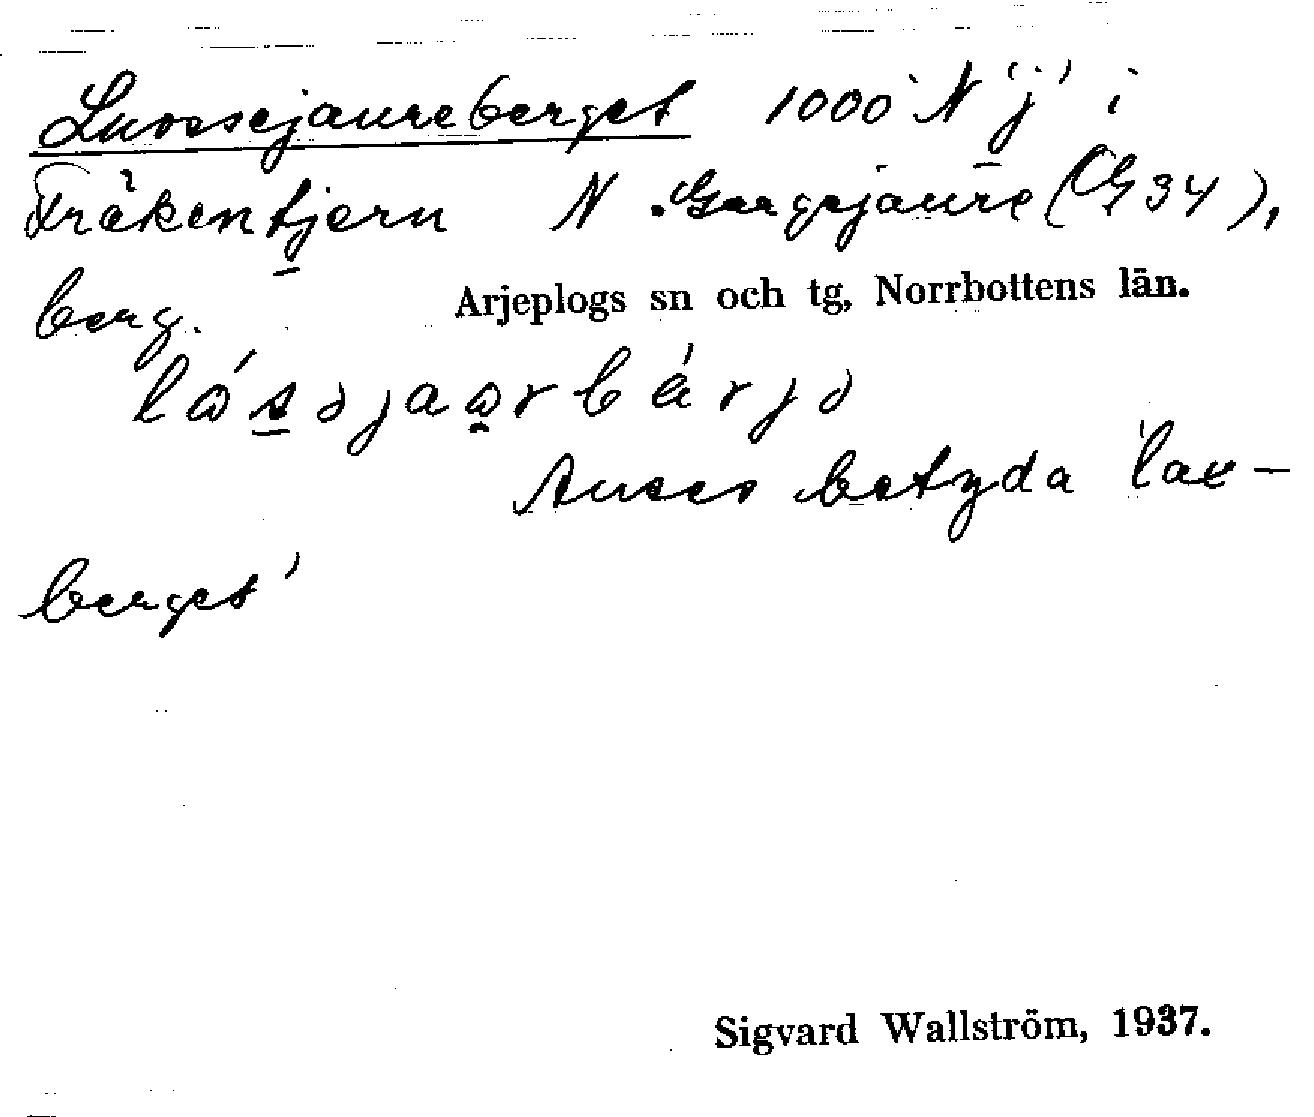 Luossejaureberget 1000 N 'j' i
Fräkentjern N Gargejaure (G 34),
berg. Arjeplogs sn och tg, Norrbottens län.
Anses betyda 'lax-
berget'
Sigvard Wallström, 1937.